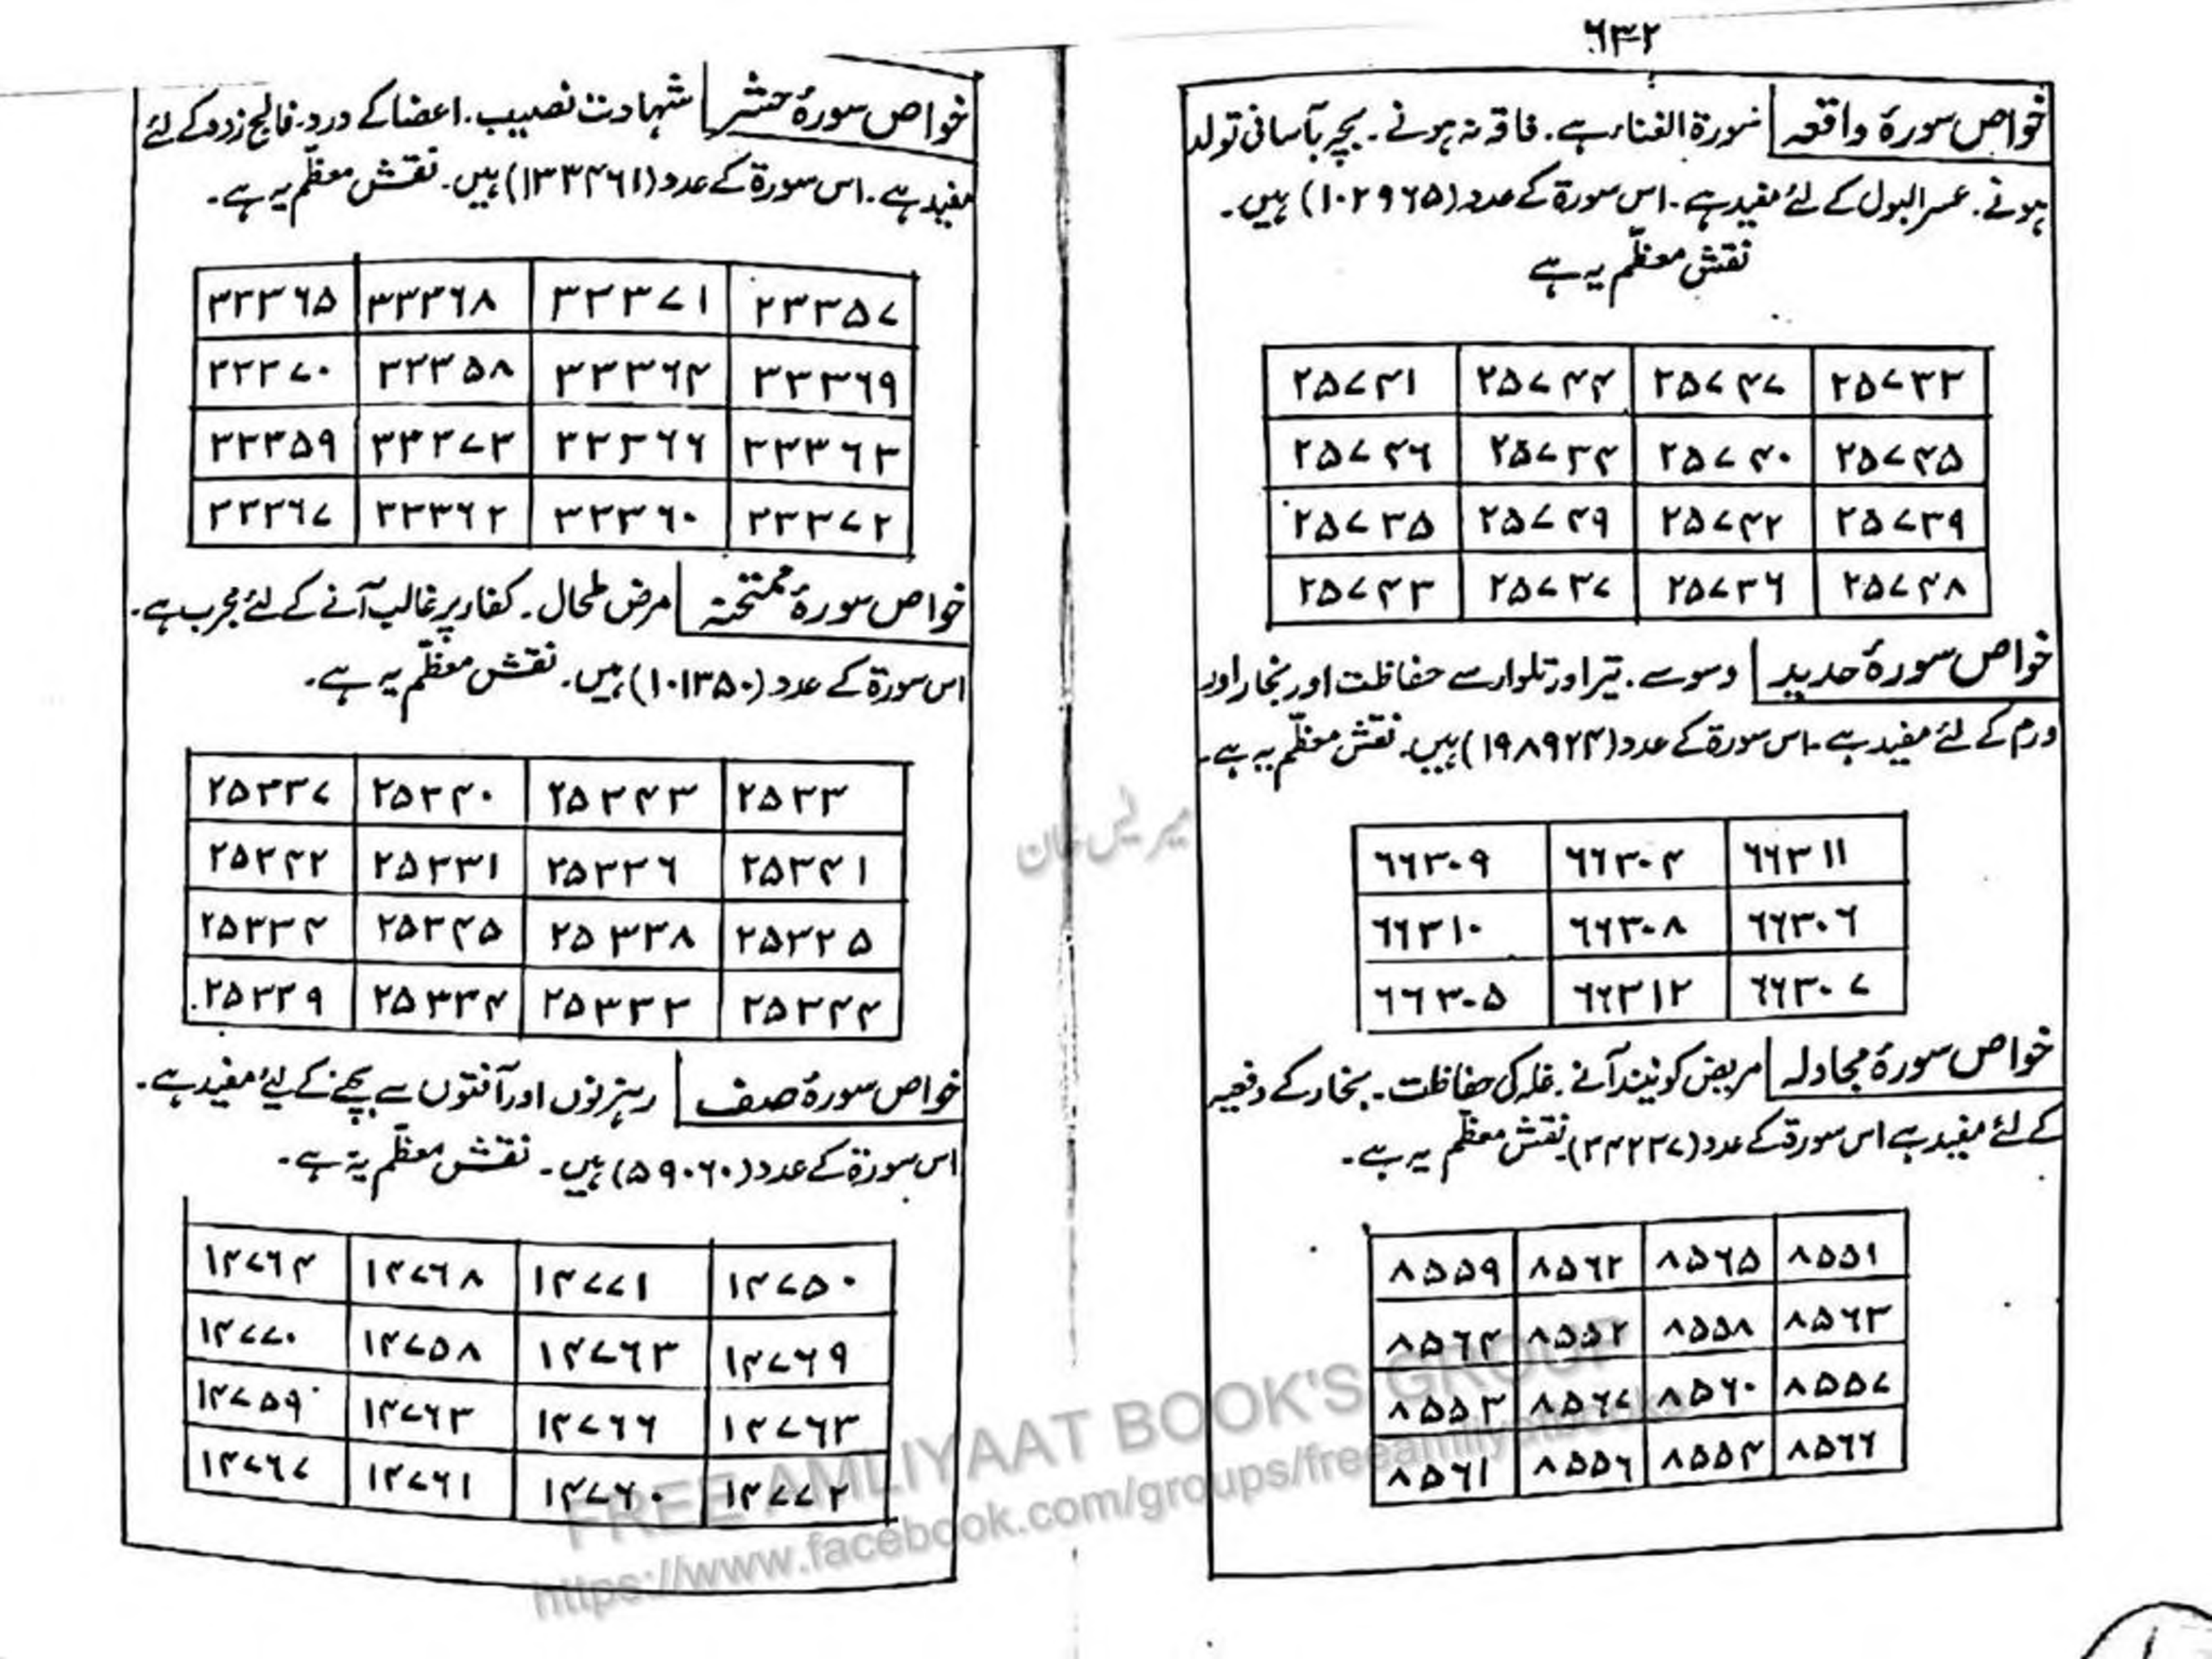 ۶۳۲
خواص سورۂ واقعہ سورۃ الغناء ہے. فاقہ نہ ہونے. بچہ بآسانی تولد
ہونے. عسر البول کے لئے مفید ہے. اس سورۃ کے عدد (۱۰۲۹۶۵) ہیں.
نقش معظّم یہ ہے
۲۵۷۳۳ ۲۵۷۴۷ ۲۵۷۴۴ ۲۵۷۴۱
۲۵۷۴۵ ۲۵۷۴۰ ۲۵۷۳۴ ۲۵۷۴۶
۲۵۷۳۹ ۲۵۷۴۲ ۲۵۷۴۹ ۲۵۷۳۵
۲۵۷۴۸ ۲۵۷۳۶ ۲۵۷۳۷ ۲۵۷۴۳
خواص سورۂ حدید وسوسے. تیر اور تلوار سے حفاظت اور بخار اور
ورم کے لئے مفید ہے. اس سورۃ کے عدد (۱۹۸۹۲۴) ہیں. نقش معظّم یہ ہے.
۶۶۳۱۱ ۶۶۳۰۴ ۶۶۳۰۹
۶۶۳۰۶ ۶۶۳۰۸ ۶۶۳۱۰
۶۶۳۰۷ ۶۶۳۱۲ ۶۶۳۰۵
خواص سورۂ مجادلہ مریض کو نیند آنے. غلہ کی حفاظت. بخار کے دفعیہ
کے لئے مفید ہے اس سورۃ کے عدد (۳۴۲۳۷) نقش معظّم یہ ہے.
۸۵۵۱ ۸۵۶۵ ۸۵۶۲ ۸۵۵۹
۸۵۶۳ ۸۵۵۸ ۸۵۵۲ ۸۵۶۴
۸۵۵۷ ۸۵۶۰ ۸۵۶۷ ۸۵۵۳
۸۵۶۶ ۸۵۵۴ ۸۵۵۶ ۸۵۶۱
خواص سورۂ حشر شہادت نصیب. اعضا کے درد. فالج زدہ کے لئے
مفید ہے. اس سورۃ کے عدد (۱۳۳۴۶۱) ہیں. نقش معظّم یہ ہے.
۳۳۳۵۷ ۳۳۳۷۱ ۳۳۳۶۸ ۳۳۳۶۵
۳۳۳۶۹ ۳۳۳۶۴ ۳۳۳۵۸ ۳۳۳۷۰
۳۳۳۶۳ ۳۳۳۶۶ ۳۳۳۷۳ ۳۳۳۵۹
۳۳۳۷۲ ۳۳۳۶۰ ۳۳۳۶۲ ۳۳۳۶۷
خواص سورۂ ممتحنہ مرض طحال. کفار پر غالب آنے کے لئے مجرب ہے.
اس سورۃ کے عدد (۱۰۱۳۵۰) ہیں. نقش معظّم یہ ہے.
۲۵۳۳ ۲۵۳۴۳ ۲۵۳۴۰ ۲۵۳۳۷
۲۵۳۴۱ ۲۵۳۳۶ ۲۵۳۳۱ ۲۵۳۴۲
۲۵۳۳۵ ۲۵۳۳۸ ۲۵۳۴۵ ۲۵۳۳۴
۲۵۳۴۴ ۲۵۳۳۳ ۲۵۳۳۴ ۲۵۳۳۹
خواص سورۂ صف رہزنوں اور آفتوں سے بچنے کے لئے مفید ہے.
اس سورۃ کے عدد (۵۹۰۶۰) ہیں. نقش معظّم یہ ہے.
۱۴۷۵۰ ۱۴۷۷۱ ۱۴۷۶۸ ۱۴۷۶۴
۱۴۷۶۹ ۱۴۷۶۳ ۱۴۷۵۸ ۱۴۷۷۰
۱۴۷۶۳ ۱۴۷۶۶ ۱۴۷۶۳ ۱۴۷۵۹
۱۴۷۷۲ ۱۴۷۶۰ ۱۴۷۶۱ ۱۴۷۶۷
FREE AMLIYAAT BOOK'S GROUP
https://www.facebook.com/groups/freeamliyatbooks